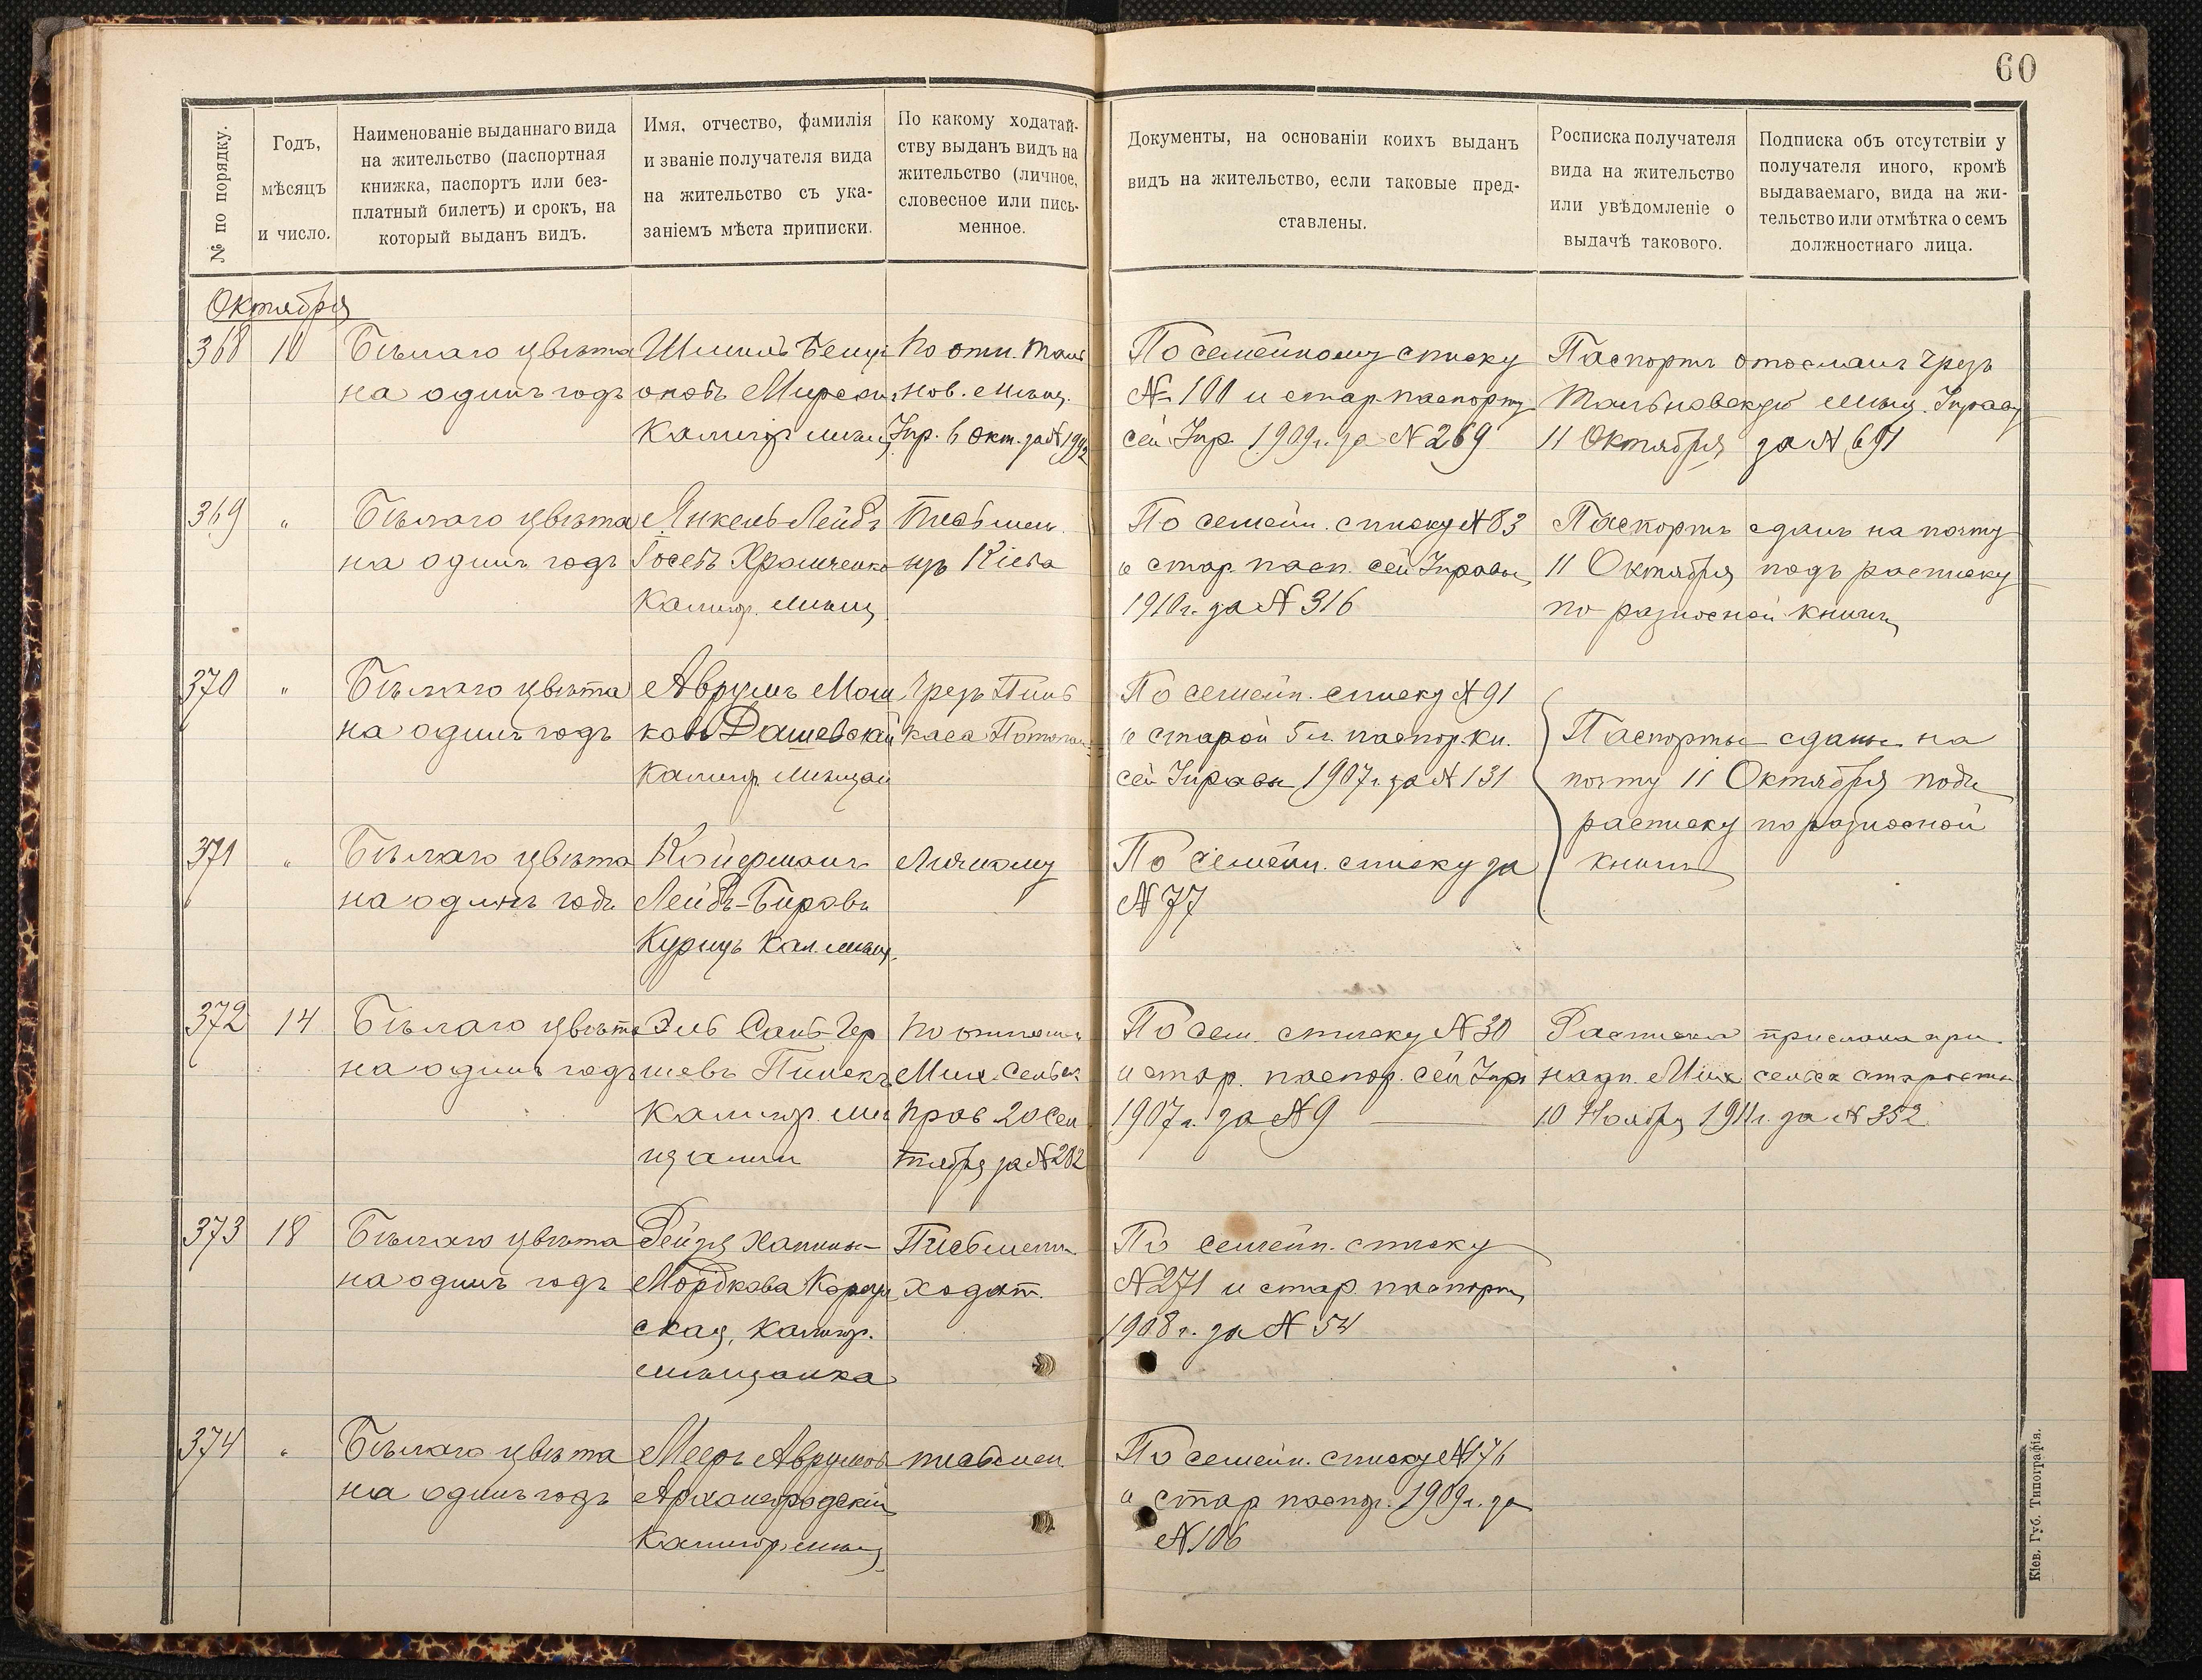 60
№ по порядку.
Годъ,
мѣсяцъ
и число.
Наименованіе выданнаго вида
на жительство (паспортная
книжка, паспортъ или без-
платный билетъ) и срокъ, на
который выданъ видъ.
Имя, отчество, фамилія
и званіе получателя вида
на жительство съ ука-
заніемъ мѣста приписки.
По какому ходатай-
ству выданъ видъ на
жительство (личное,
словесное или пись-
менное.
Документы, на основаніи коихъ выданъ
видъ на жительство, если таковые пред-
ставлены.
Росписка получателя
вида на жительство
или увѣдомленіе о
выдачѣ такового.
Подписка объ отсутствіи у
получателя иного, кромѣ
выдаваемаго, вида на жи-
тельство или отмѣтка о семъ
должностнаго лица.
Октября
368
10
Бѣлаго цвѣта
на одинъ годъ
Шмиль
Калигор мѣщ
По отн. Таль
нов. мѣщ.
Упр. 6 Окт. за № 1992
По семейному списку
№ 100 и стар. паспорту
сей Упр. 1909 г. за № 269
Паспортъ отосланъ чрезъ
Тальновскую мѣщ. Управу
11 Октября за № 691
369
"
Бѣлаго цвѣта
на одинъ годъ
Янкель-Лейбъ
Іосевъ Храмченко
Калигор. мѣщ
Письмен.
изъ Кіева
По семейн. списку № 83
и стар. пасп. сей Управы
1910 г. за № 316
Паспортъ сданъ на почту
11 Октября подъ расписку
по разносной книгѣ
370
"
Бѣлаго цвѣта
на одинъ годъ
Аврумъ Мош
ковъ Дашевскій
Калигор. мѣщан
Чрезъ Пинь
каса
По семейн. списку № 91
и старой 5 л. паспор. кн.
сей Управы 1907 г. за № 131
Паспорты сданы на
почту 11 Октября подъ
расписку по разносной
книгѣ
371
"
Бѣлаго цвѣта
на одинъ годъ
Койфманъ
Лейбъ-Беровъ
Курицъ Кал. мѣщ.
Личному
По семейн. списку за
№ 77
372
14
Бѣлаго цвѣта
на одинъ годъ
Эль Сань-Гер
шевъ Пинскъ
Калигор. мѣ
щанин
По отношен
Мих. Сельск
Прав 20 Сен
тября за № 282
По сем. списку № 30
и стар. паспор. сей Упр
1907 г. за № 9
Расписка прислана при
надп. Мих сельск старосты
10 Ноября 1911 г. за № 352
373
18
Бѣлаго цвѣта
на одинъ годъ
Рейзя
Мордкова
ская, Калигор.
мѣщанка
Письмен.
ходат.
По семейн. списку
№ 271 и стар. паспорту
1908 г. за № 54
374
"
Бѣлаго цвѣта
на одинъ годъ
Мееръ Аврумов
Архангородскій
Калигор. мѣщ
письмен.
По семейн. списку № 176
и стар паспор. 1909 г. за
№ 106
Кіев. Губ. Типографія.